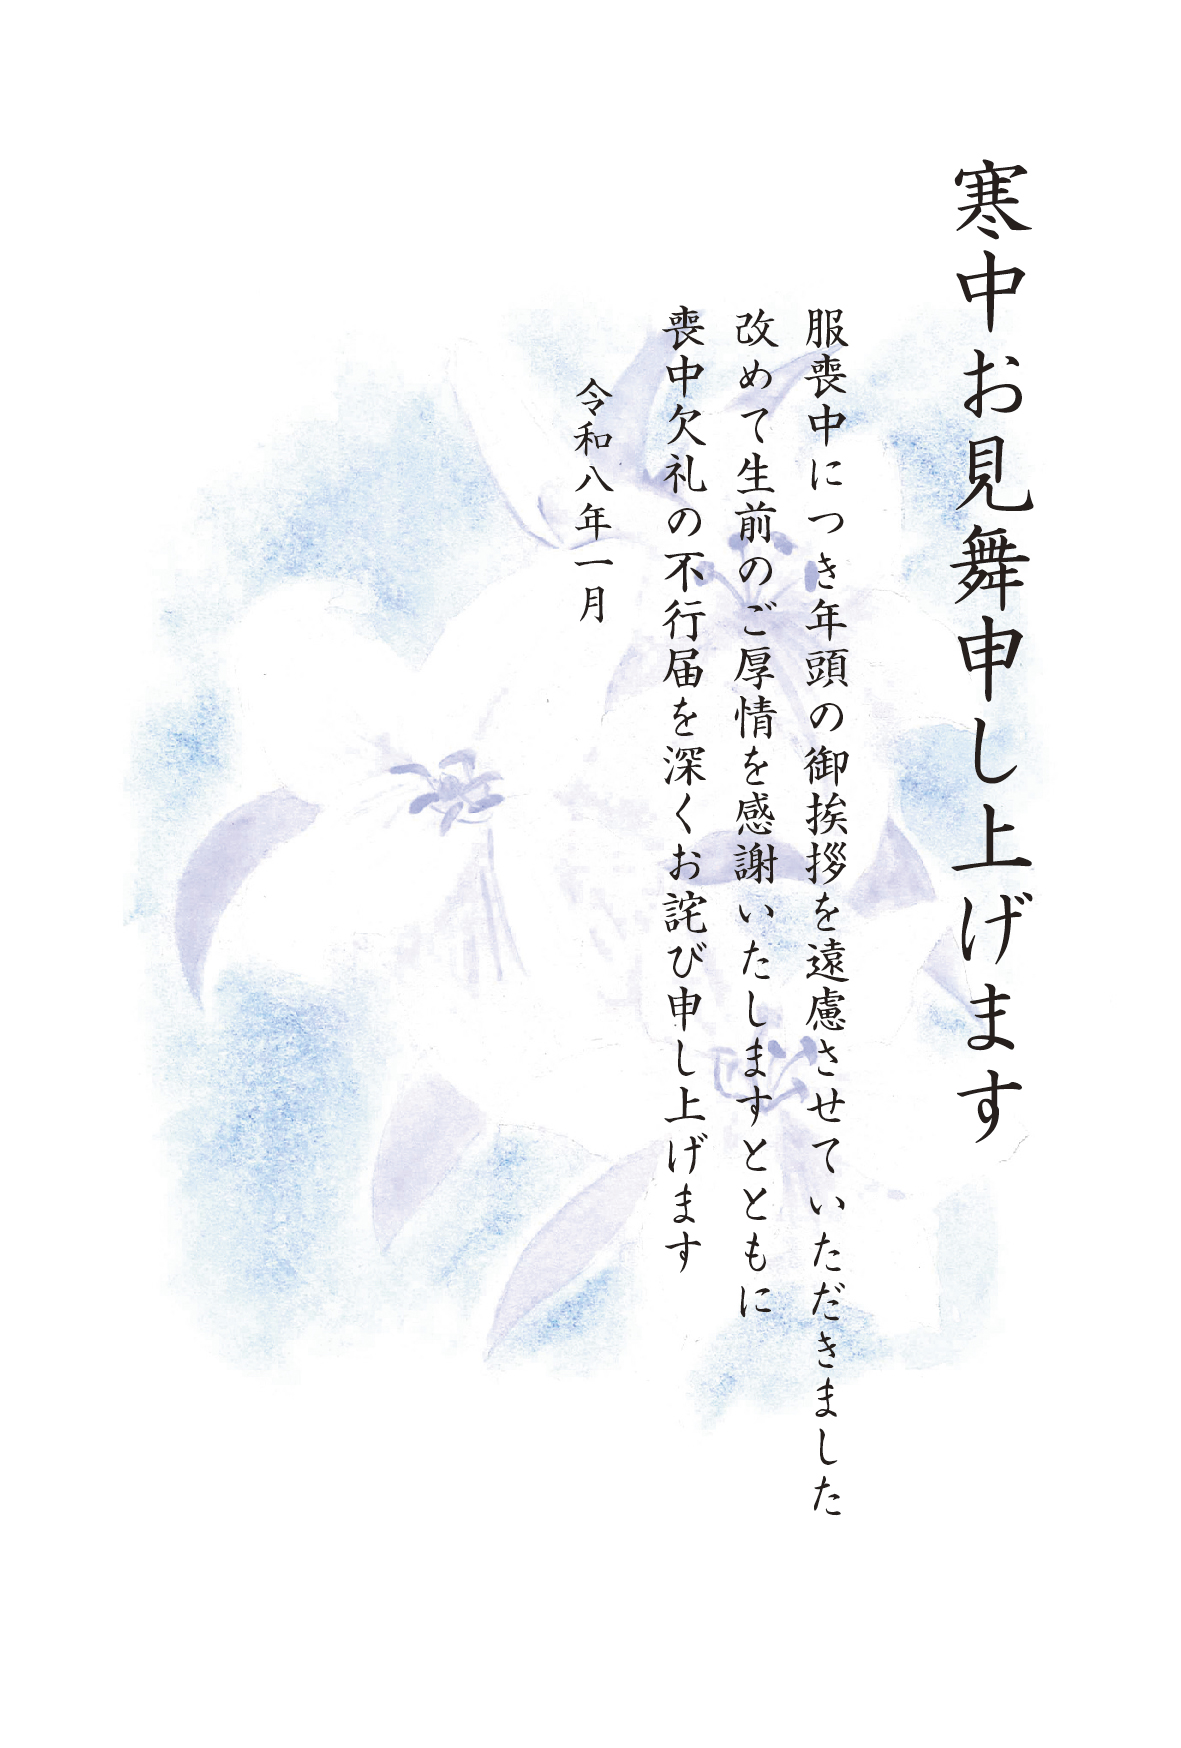 寒中お見舞申し上げます
服喪中につき年頭の御挨拶を遠慮させていただきました
改めて生前のご厚情を感謝いたしますとともに
喪中欠礼の不行届を深くお詫び申し上げます
令和八年一月